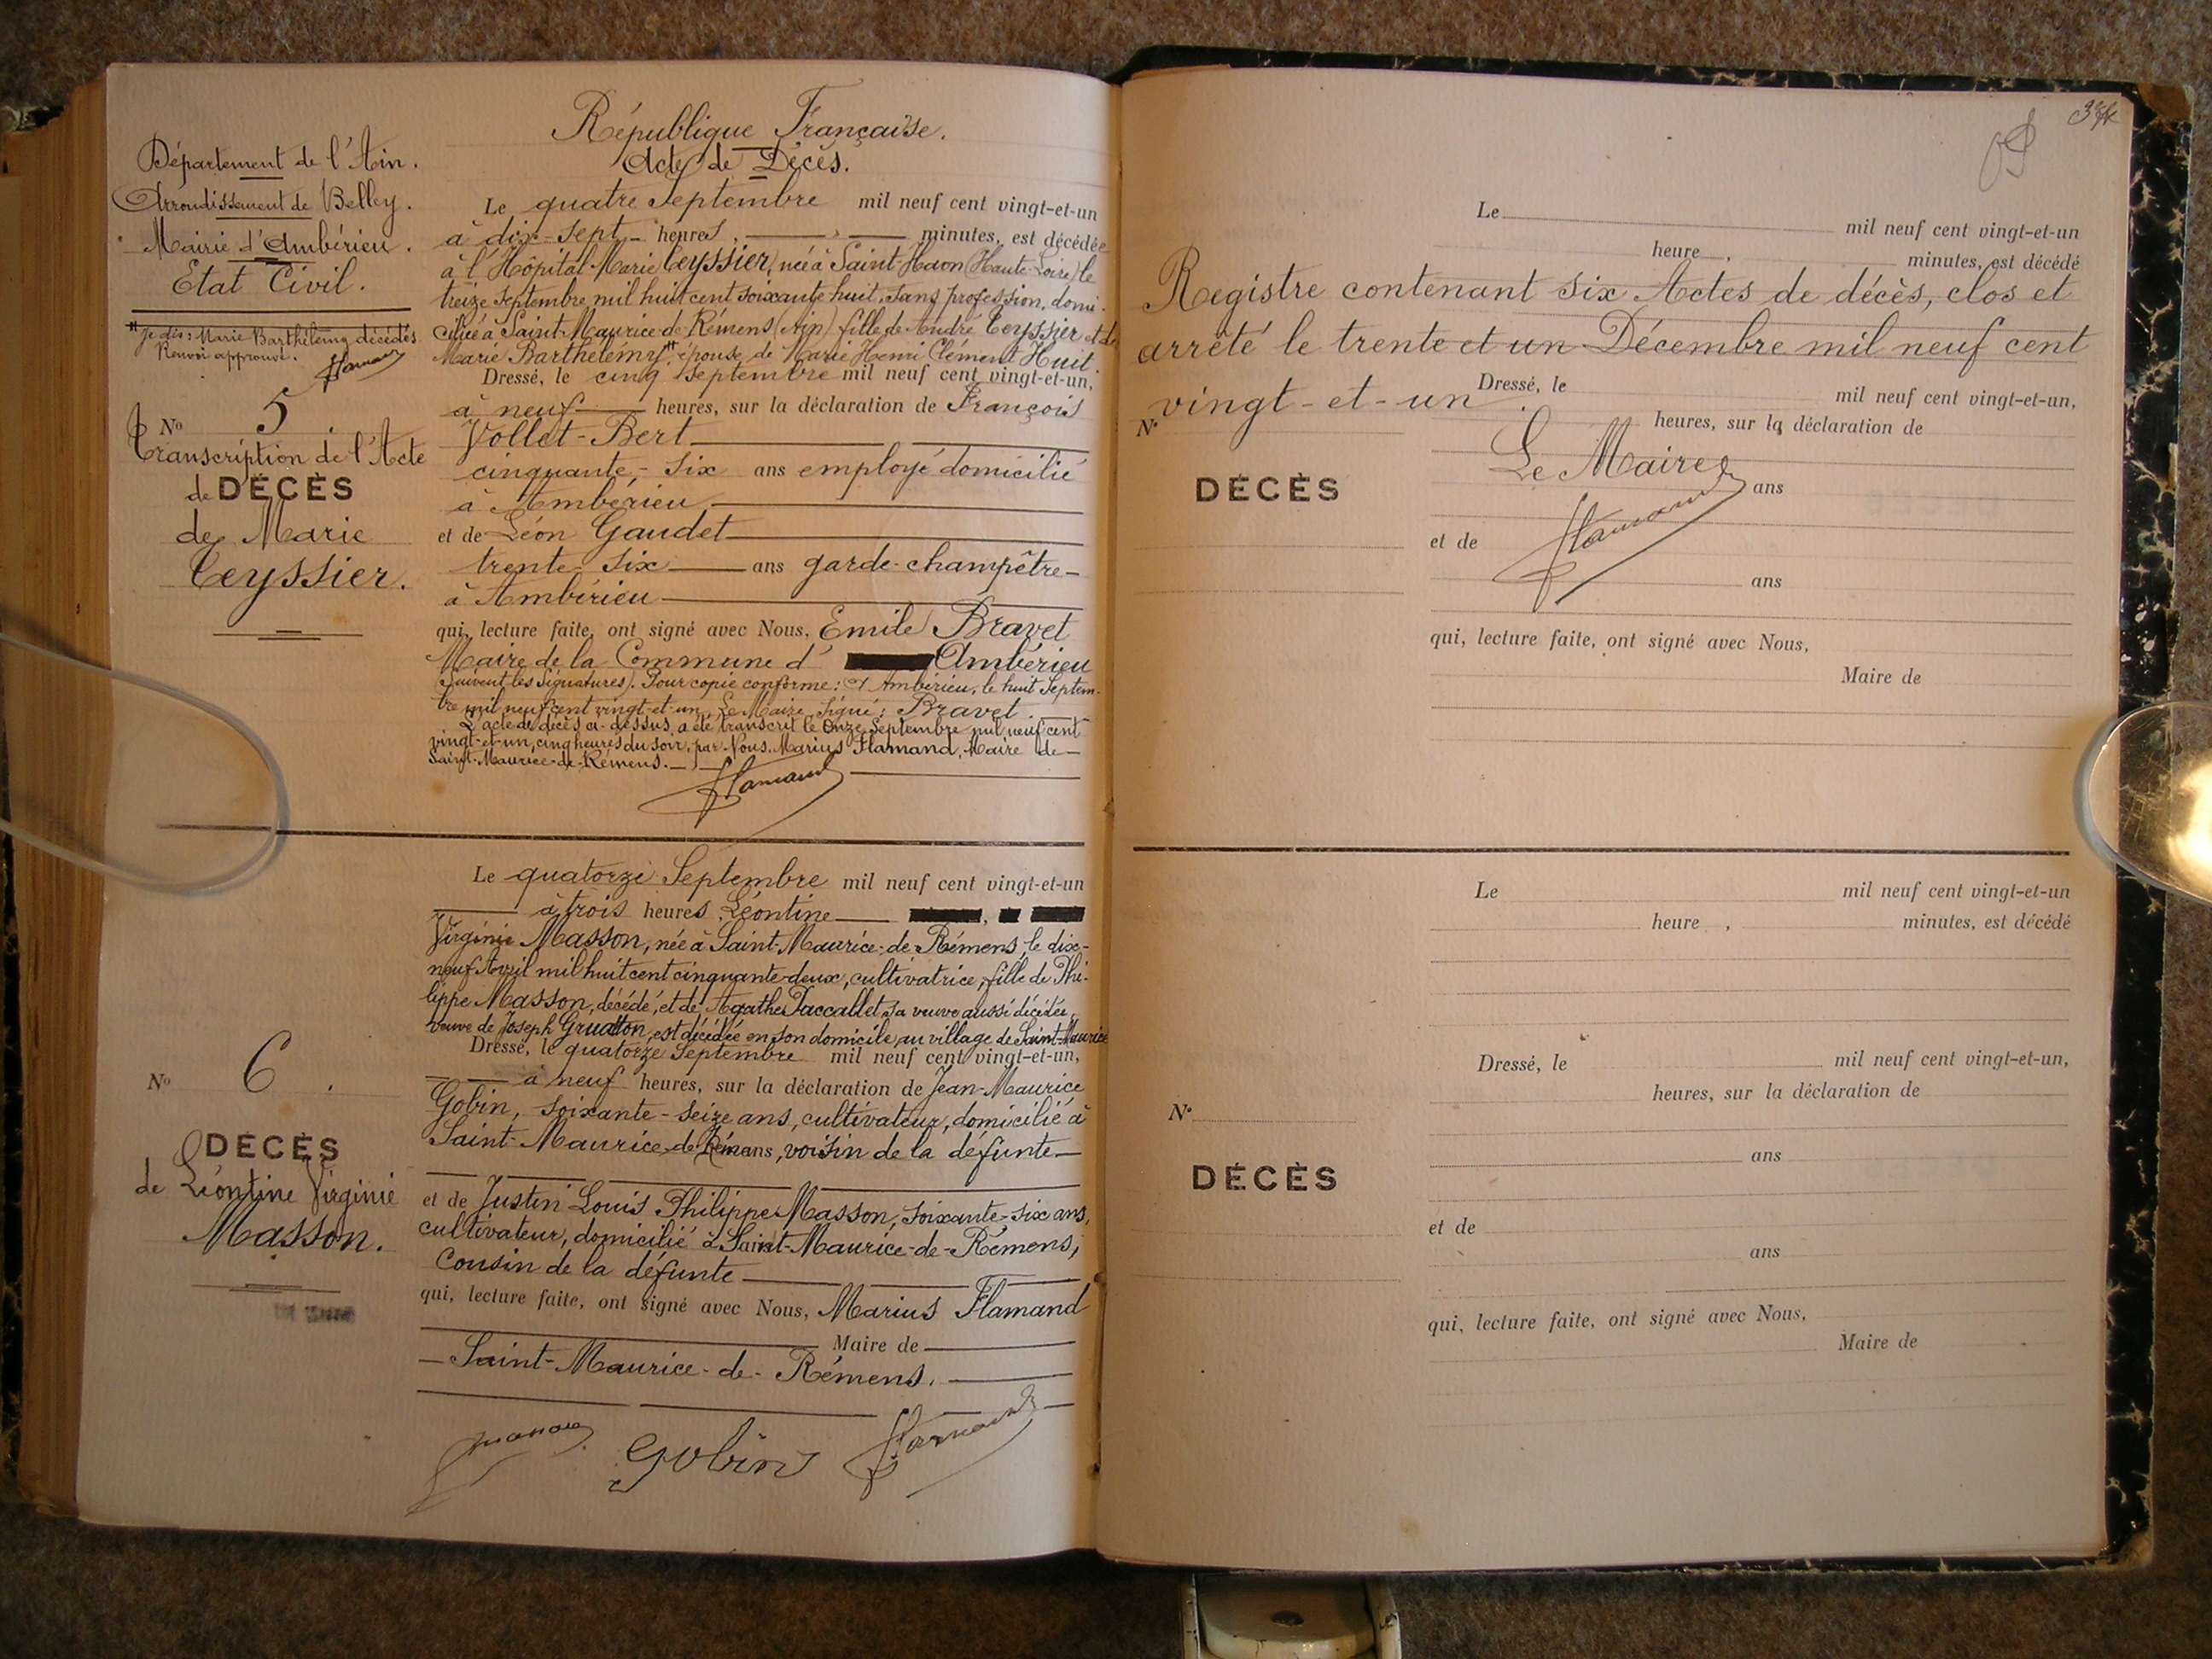 République Française.
Acte de Décès.
Département de l'Ain.
Arrondissement de Belley.
Mairie d'Ambérieu.
Etat Civil.
Je dis: Marie Barthélemy décédés
Renvoi approuvé. Flamand
N° 5.
Transcription de l'Acte
de DÉCÈS
de Marie
Teyssier.
Le quatre Septembre mil neuf cent vingt-et-un
à dix-sept heures, minutes, est décédée
à l'Hôpital Marie Teyssier, née à Saint-Haon (Haute-Loire) le
treize Septembre mil huit cent soixante huit, sans profession, domi-
ciliée à Saint-Maurice-de-Rémens (Ain) fille de André Teyssier et de
Marie Barthélémy, épouse de Marie Henri Clément Huit.
Dressé, le cinq Septembre mil neuf cent vingt-et-un,
à neuf heures, sur la déclaration de François
Vollet-Bert
cinquante-six ans employé domicilié
à Ambérieu
et de Léon Gaudet
trente-six ans garde-champêtre
à Ambérieu
qui, lecture faite, ont signé avec Nous, Emile Bravet
Maire de la Commune d' Ambérieu
(Suivent les Signatures). Pour copie conforme: A Ambérieu, le huit Septem-
bre mil neuf cent vingt-et-un, Le Maire, Signé: Bravet.
L'acte de décès ci-dessus a été transcrit le Onze Septembre mil neuf cent
vingt-et-un, cinq heures du soir, par Nous, Marius Flamand, Maire de
Saint-Maurice-de-Rémens.
Flamand
N° 6.
DÉCÈS
de Léontine Virginie
Masson.
Le quatorze Septembre mil neuf cent vingt-et-un
à trois heures, Léontine
Virginie Masson, née à Saint-Maurice-de-Rémens, le dix-
neuf Avril mil huit cent cinquante-deux, cultivatrice, fille de Phi-
lippe Masson, décédé, et de Agathe Vaccallet, sa veuve aussi décédée,
veuve de Joseph Gruatton, est décédée en son domicile, au village de Saint-Maurice
Dressé, le quatorze Septembre mil neuf cent vingt-et-un,
à neuf heures, sur la déclaration de Jean-Maurice
Gobin, soixante-seize ans, cultivateur, domicilié à
Saint-Maurice-de-Rémens, voisin de la défunte
et de Justin Louis Philippe Masson, soixante-six ans,
cultivateur, domicilié à Saint-Maurice-de-Rémens,
Cousin de la défunte
qui, lecture faite, ont signé avec Nous, Marius Flamand
Maire de
Saint-Maurice-de-Rémens.
Masson Gobin Flamand
Le mil neuf cent vingt-et-un
heure, minutes, est décédé
Registre contenant six Actes de décès, clos et
arrêté le trente et un Décembre mil neuf cent
vingt-et-un.
Dressé, le mil neuf cent vingt-et-un,
N° heures, sur la déclaration de
Le Maire
DÉCÈS
ans
Flamand
et de
ans
qui, lecture faite, ont signé avec Nous,
Maire de
Le mil neuf cent vingt-et-un
heure, minutes, est décédé
Dressé, le mil neuf cent vingt-et-un,
heures, sur la déclaration de
N°
ans
DÉCÈS
et de
ans
qui, lecture faite, ont signé avec Nous,
Maire de